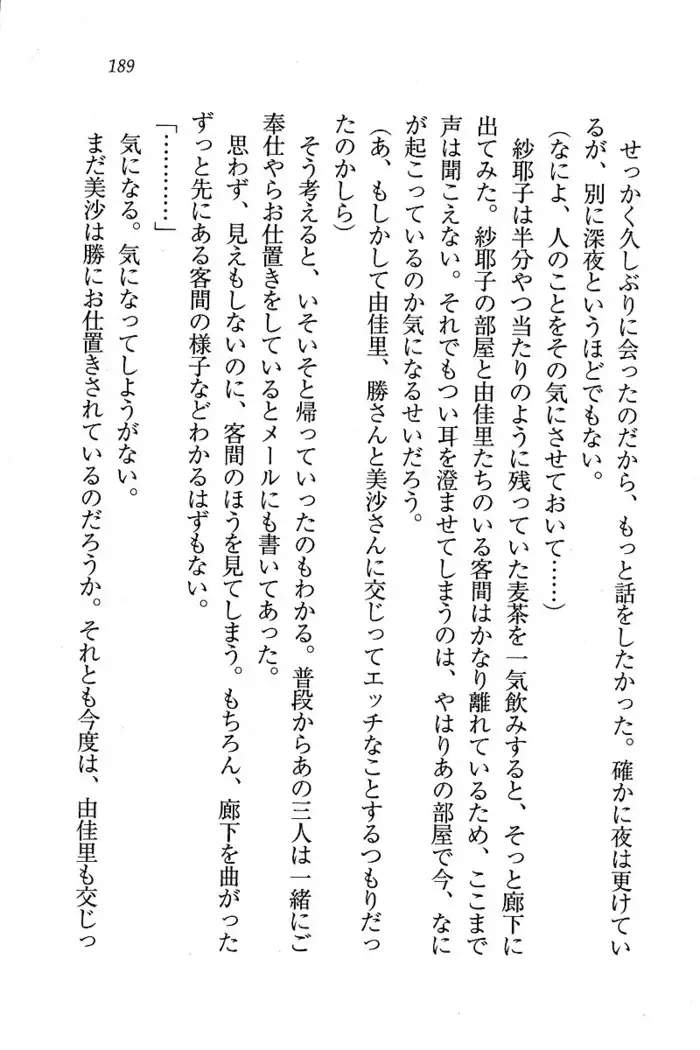 189
せっかく久しぶりに会ったのだから、もっと話をしたかった。確かに夜は更けてい
るが、別に深夜というほどでもない。
(なによ、人のことをその気にさせておいて……)
紗耶子は半分やつ当たりのように残っていた麦茶を一気飲みすると、そっと廊下に
出てみた。紗耶子の部屋と由佳里たちのいる客間はかなり離れているため、ここまで
声は聞こえない。それでもつい耳を澄ませてしまうのは、やはりあの部屋で今、なに
が起こっているのか気になるせいだろう。
(あ、もしかして由佳里、勝さんと美沙さんに交じってエッチなことするつもりだっ
たのかしら)
そう考えると、いそいそと帰っていったのもわかる。普段からあの三人は一緒にご
奉仕やらお仕置きをしているとメールにも書いてあった。
思わず、見えもしないのに、客間のほうを見てしまう。もちろん、廊下を曲がった
ずっと先にある客間の様子などわかるはずもない。
「…………」
気になる。気になってしようがない。
まだ美沙は勝にお仕置きされているのだろうか。それとも今度は、由佳里も交じっ